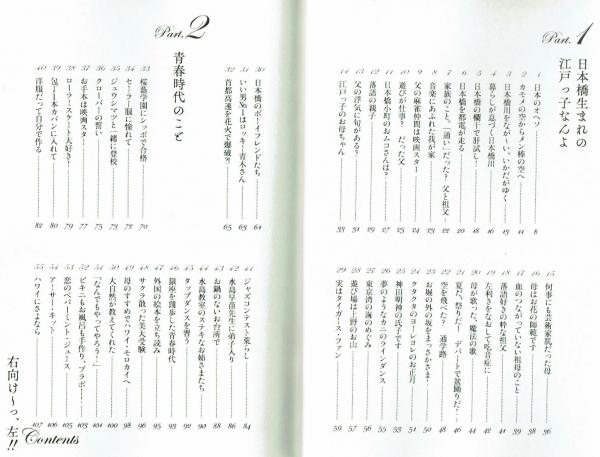 Part.1
日本橋生まれの
江戸っ子なんよ
1 日本のオヘソ 8
2 カモメの空からメン棒の空へ 11
3 日本橋川をながーい、いかだがゆく 13
4 暮らしが息づく日本橋川 16
5 日本橋の欄干で肝試し! 18
6 日本橋を都電が走る 20
7 家族のこと。「通い」だった? 父と祖父 22
8 音楽にあふれた我が家
9 父の麻雀仲間は映画スター
10 遊びが仕事? だった父
11 日本橋小町のおムコさんは? 27
12 落語の親子 29
13 父の浮気に旬がある? 31
14 江戸っ子のお母ちゃん 33
15 何事にも芸術家肌だった母 36
16 母はお花の師範です 38
17 血のつながっていない祖母のこと 39
18 落語好きの粋な祖父 41
19 左利きをなおして吃音症に
20 母が歌った、魔法の歌 44
21 夏だ、祭りだ! デパートで盆踊りだ?
22 空を飛べ? 通学路 48
23 お堀の外の坂をまっさかさま! 50
24 クタクタのヨレヨレのお正月 51
25 神田明神の氏子です 53
26 夢のようなカニのラインダンス
27 東京湾の海のめぐみ 56
28 遊び場は上野のお山 57
29 実はタイガース・ファン 59
Part.2
青春時代のこと
30 日本橋のボーイフレンドたち 61
31 いい男No.1はロッキー青木さん 63
32 首都高速を花火で爆破?! 65
33 桜蔭学園にシッポで合格 70
34 セーラー服に憧れて 72
35 ジュウシマツと一緒に登校 73
36 クローバーの誓い 75
37 お手本は映画スター 77
38 ローラースケート大好き! 79
39 包丁一本カバンに入れて 80
40 洋服だって自分で作る 82
41 ジャズコンテスト荒らし 84
42 水島早苗先生に弟子入り 86
43 お鍋のないお台所で 88
44 水島教室のステキなお姉さまたち 90
45 タップダンスを習う 92
46 銀座を闊歩した青春時代 94
47 外国の絵本を立ち読み 95
48 サクラ散った美大受験 96
49 母のすすめでハワイ・モロカイへ 98
50 大自然が教えてくれた 100
51 「なんでもやってやろう!」 101
52 ビキニもお風呂も手作り、ブラボー! 103
53 恋のペパーミント・ジュース 105
54 アーサー・キット 106
55 ハワイにさよなら 107
右向け〜っ、左!!
Contents